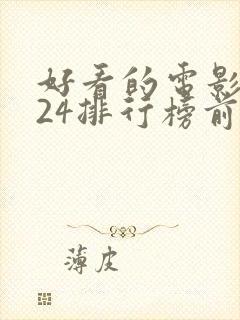 好看的电影
24排行榜前
薄皮